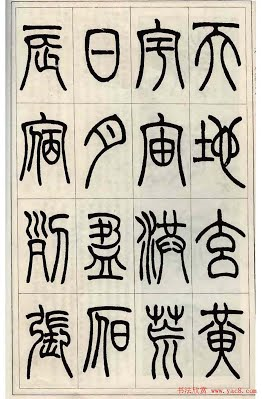 天地玄黃
宇宙洪荒
日月盈昃
辰宿列張
书法欣赏 www.yac8.com